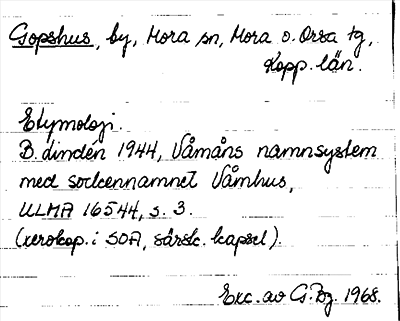 Gopshus, by, Mora sn, Mora o. Orsa tg,
Kopp. län.
Etymologi.
B. Lindén 1944, Våmåns namnsystem
med sockennamnet Våmhus,
ULMA 16544, s. 3.
(xerokop. i SOA, särsk. kapsel).
Exc. av G. Bg. 1968.